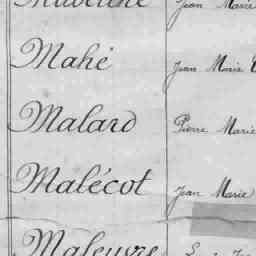 Madeleine Jean Marie
Mahé Jean Marie
Malard Pierre Marie
Malécot Jean Marie
Maleuvre